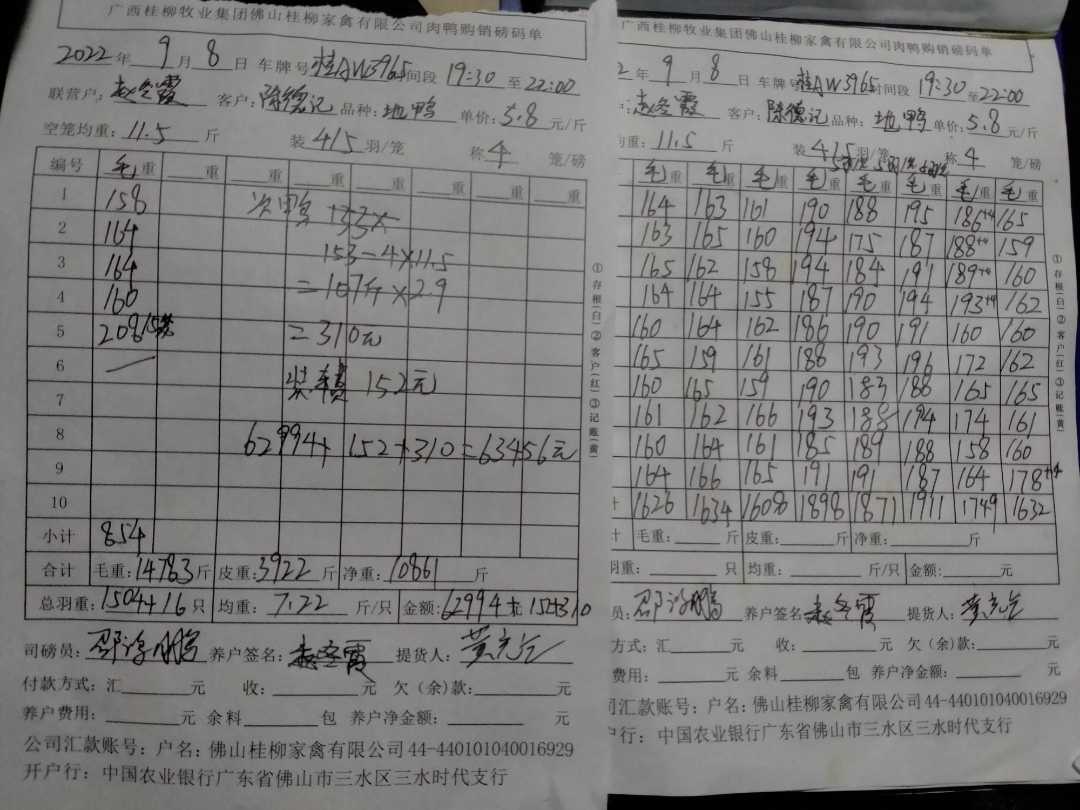 广西桂柳牧业集团佛山桂柳家禽有限公司肉鸭购销磅码单
2022年 9月 8日 车牌号 桂AW3965 时间段 19:30 至 22:00
联营户: 赵冬霞 客户: 陈德记 品种: 地鸭 单价: 5.8 元/斤
空笼均重: 11.5 斤 装 4/5 羽/笼 称 4 笼/磅
编号 毛重 重 重 重 重 重 重
1 158 次鸭 153×
2 164 153-4×11.5
3 164 =107斤×2.9
4 160
5 208/5笼 =310元
6
7 装车费 152元
8 62994+152+310=63456元
9
10
小计 854
合计 毛重: 14783 斤 皮重: 3922 斤 净重: 10861 斤
总羽重: 1504+16 只 均重: 7.22 斤/只 金额: 62994+152+310
司磅员: 养户签名: 赵冬霞 提货人:
付款方式: 汇 元 收: 元 欠(余)款: 元
养户费用: 元 余料 包 养户净金额: 元
公司汇款账号: 户名: 佛山桂柳家禽有限公司44-440101040016929
开户行: 中国农业银行广东省佛山市三水区三水时代支行
①存根(白)②客户(红)③记账(黄)
广西桂柳牧业集团佛山桂柳家禽有限公司肉鸭购销磅码单
2年 9月 8日 车牌号 桂AW3965 时间段 19:30 至 22:00
户: 赵冬霞 客户: 陈德记 品种: 地鸭 单价: 5.8 元/斤
均重: 11.5 斤 装 4/5 羽/笼 称 4 笼/磅
毛重 毛重 毛重 毛重 毛重 毛重 毛重 毛重
164 163 161 190 188 195 186+4 165
163 165 160 194 175 187 188+4 159
165 162 158 194 184 191 189+4 160
164 164 155 187 190 194 193+4 162
160 164 162 186 190 191 160 160
165 159 161 188 193 196 172 162
160 165 159 190 183 188 165 165
161 162 166 193 188 194 174 161
160 164 161 185 189 188 158 160
164 166 165 191 191 187 164 178+4
1626 1634 1608 1898 1871 1911 1749 1632
计 毛重: 斤 皮重: 斤 净重: 斤
羽重: 只 均重: 斤/只 金额: 元
员: 养户签名: 赵冬霞 提货人:
方式: 汇 元 收: 元 欠(余)款: 元
费用: 元 余料 包 养户净金额: 元
司汇款账号: 户名: 佛山桂柳家禽有限公司44-440101040016929
户行: 中国农业银行广东省佛山市三水区三水时代支行
①存根(白)②客户(红)③记账(黄)